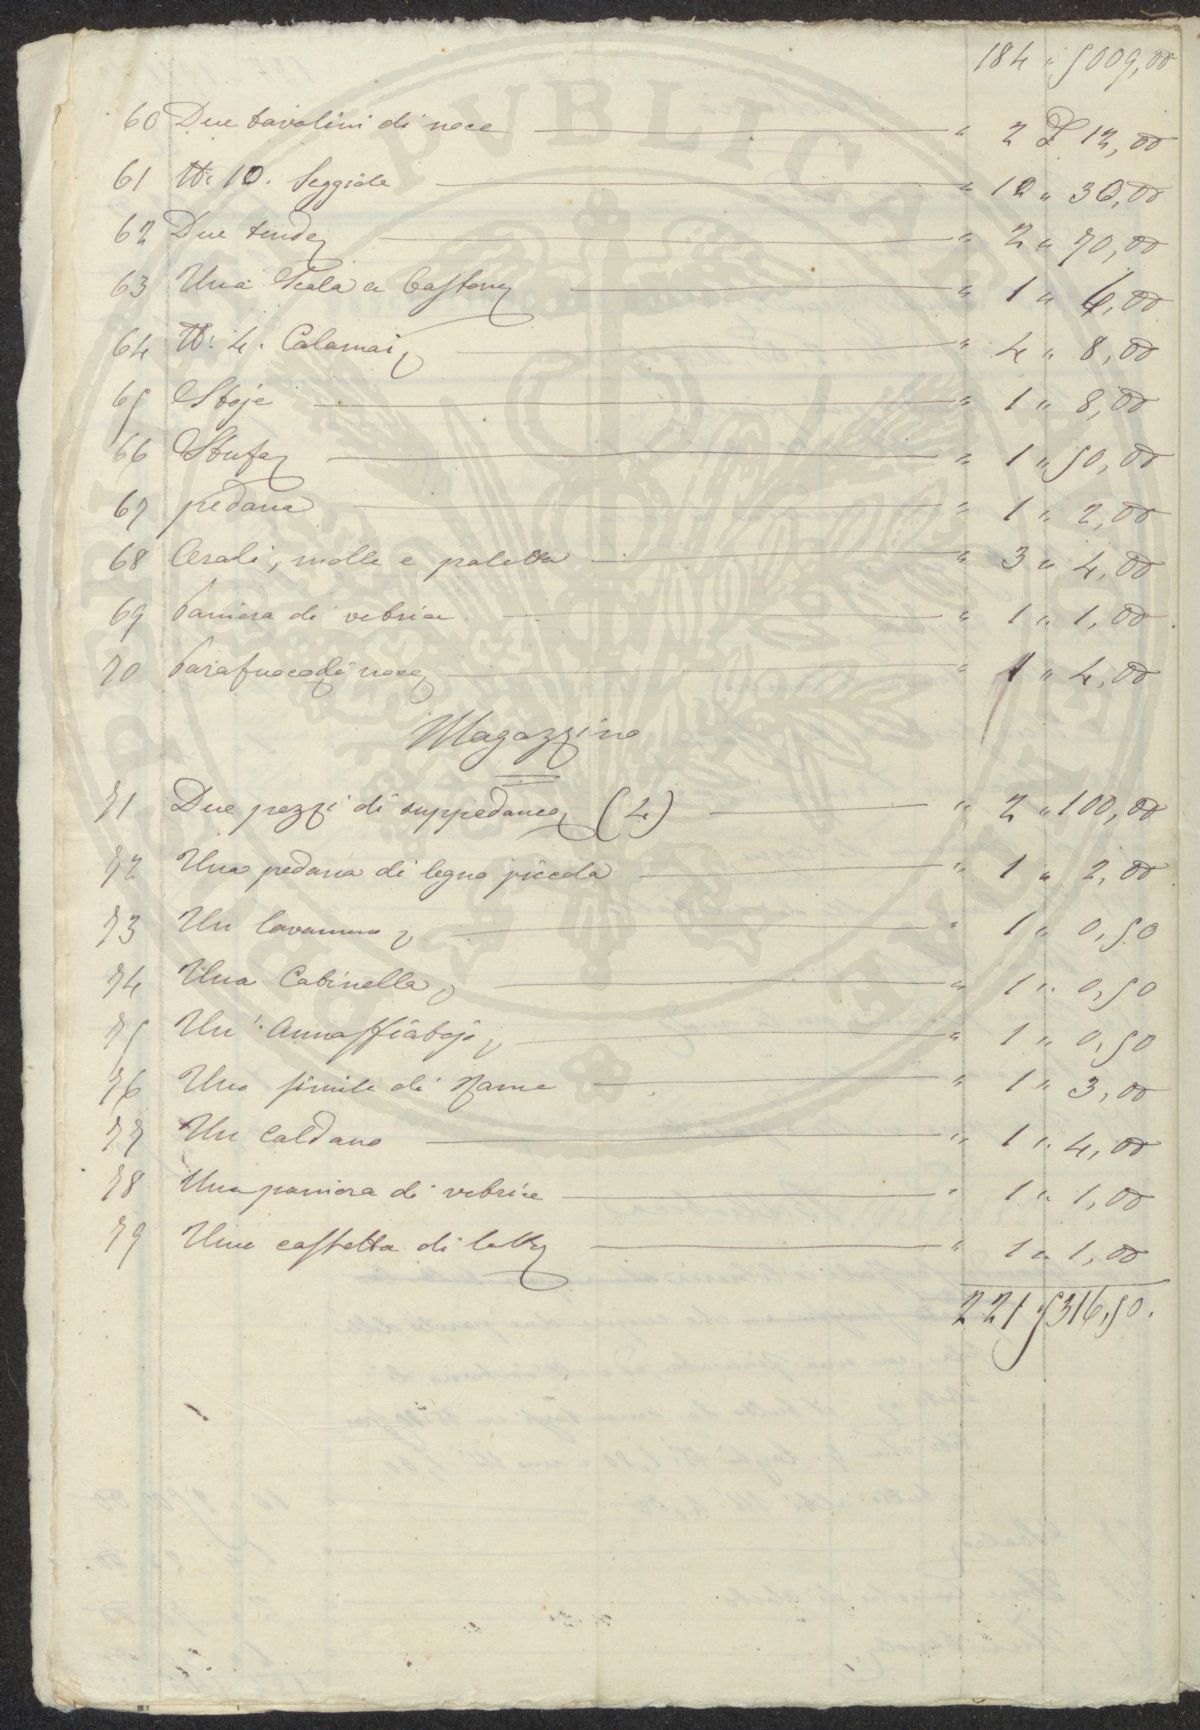 184 " 5009,00
60 Due tavolini di noce " 2 £ 12,00
61 N: 10. Seggiole " 10 " 30,00
62 Due tende " 2 " 70,00
63 Una Scala a bastone " 1 " 6,00
64 N: 4. Calamai " 4 " 8,00
65 Stoje " 1 " 8,00
66 Stufa " 1 " 50,00
67 pedana " 1 " 2,00
68 Arali, molle e paletta " 3 " 4,00
69 Paniera di vetrice " 1 " 1,00
70 Parafuoco di noce " 1 " 4,00
Magazzino
71 Due pezzi di suppedaneo (4) " 2 " 100,00
72 Una pedana di legno piccola " 1 " 2,00
73 Un lavamano " 1 " 0,50
74 Una Catinella " 1 " 0,50
75 Un' Annaffiatojo " 1 " 0,50
76 Uno simile di Rame " 1 " 3,00
77 Un Caldano " 1 " 4,00
78 Una paniera di vetrice " 1 " 1,00
79 Una cassetta di latta " 1 " 1,00
221 " 5316,50.